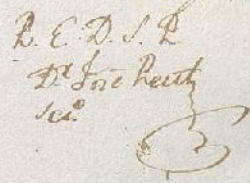 R. E. D. S. R
Dr Jose Reutz
scº